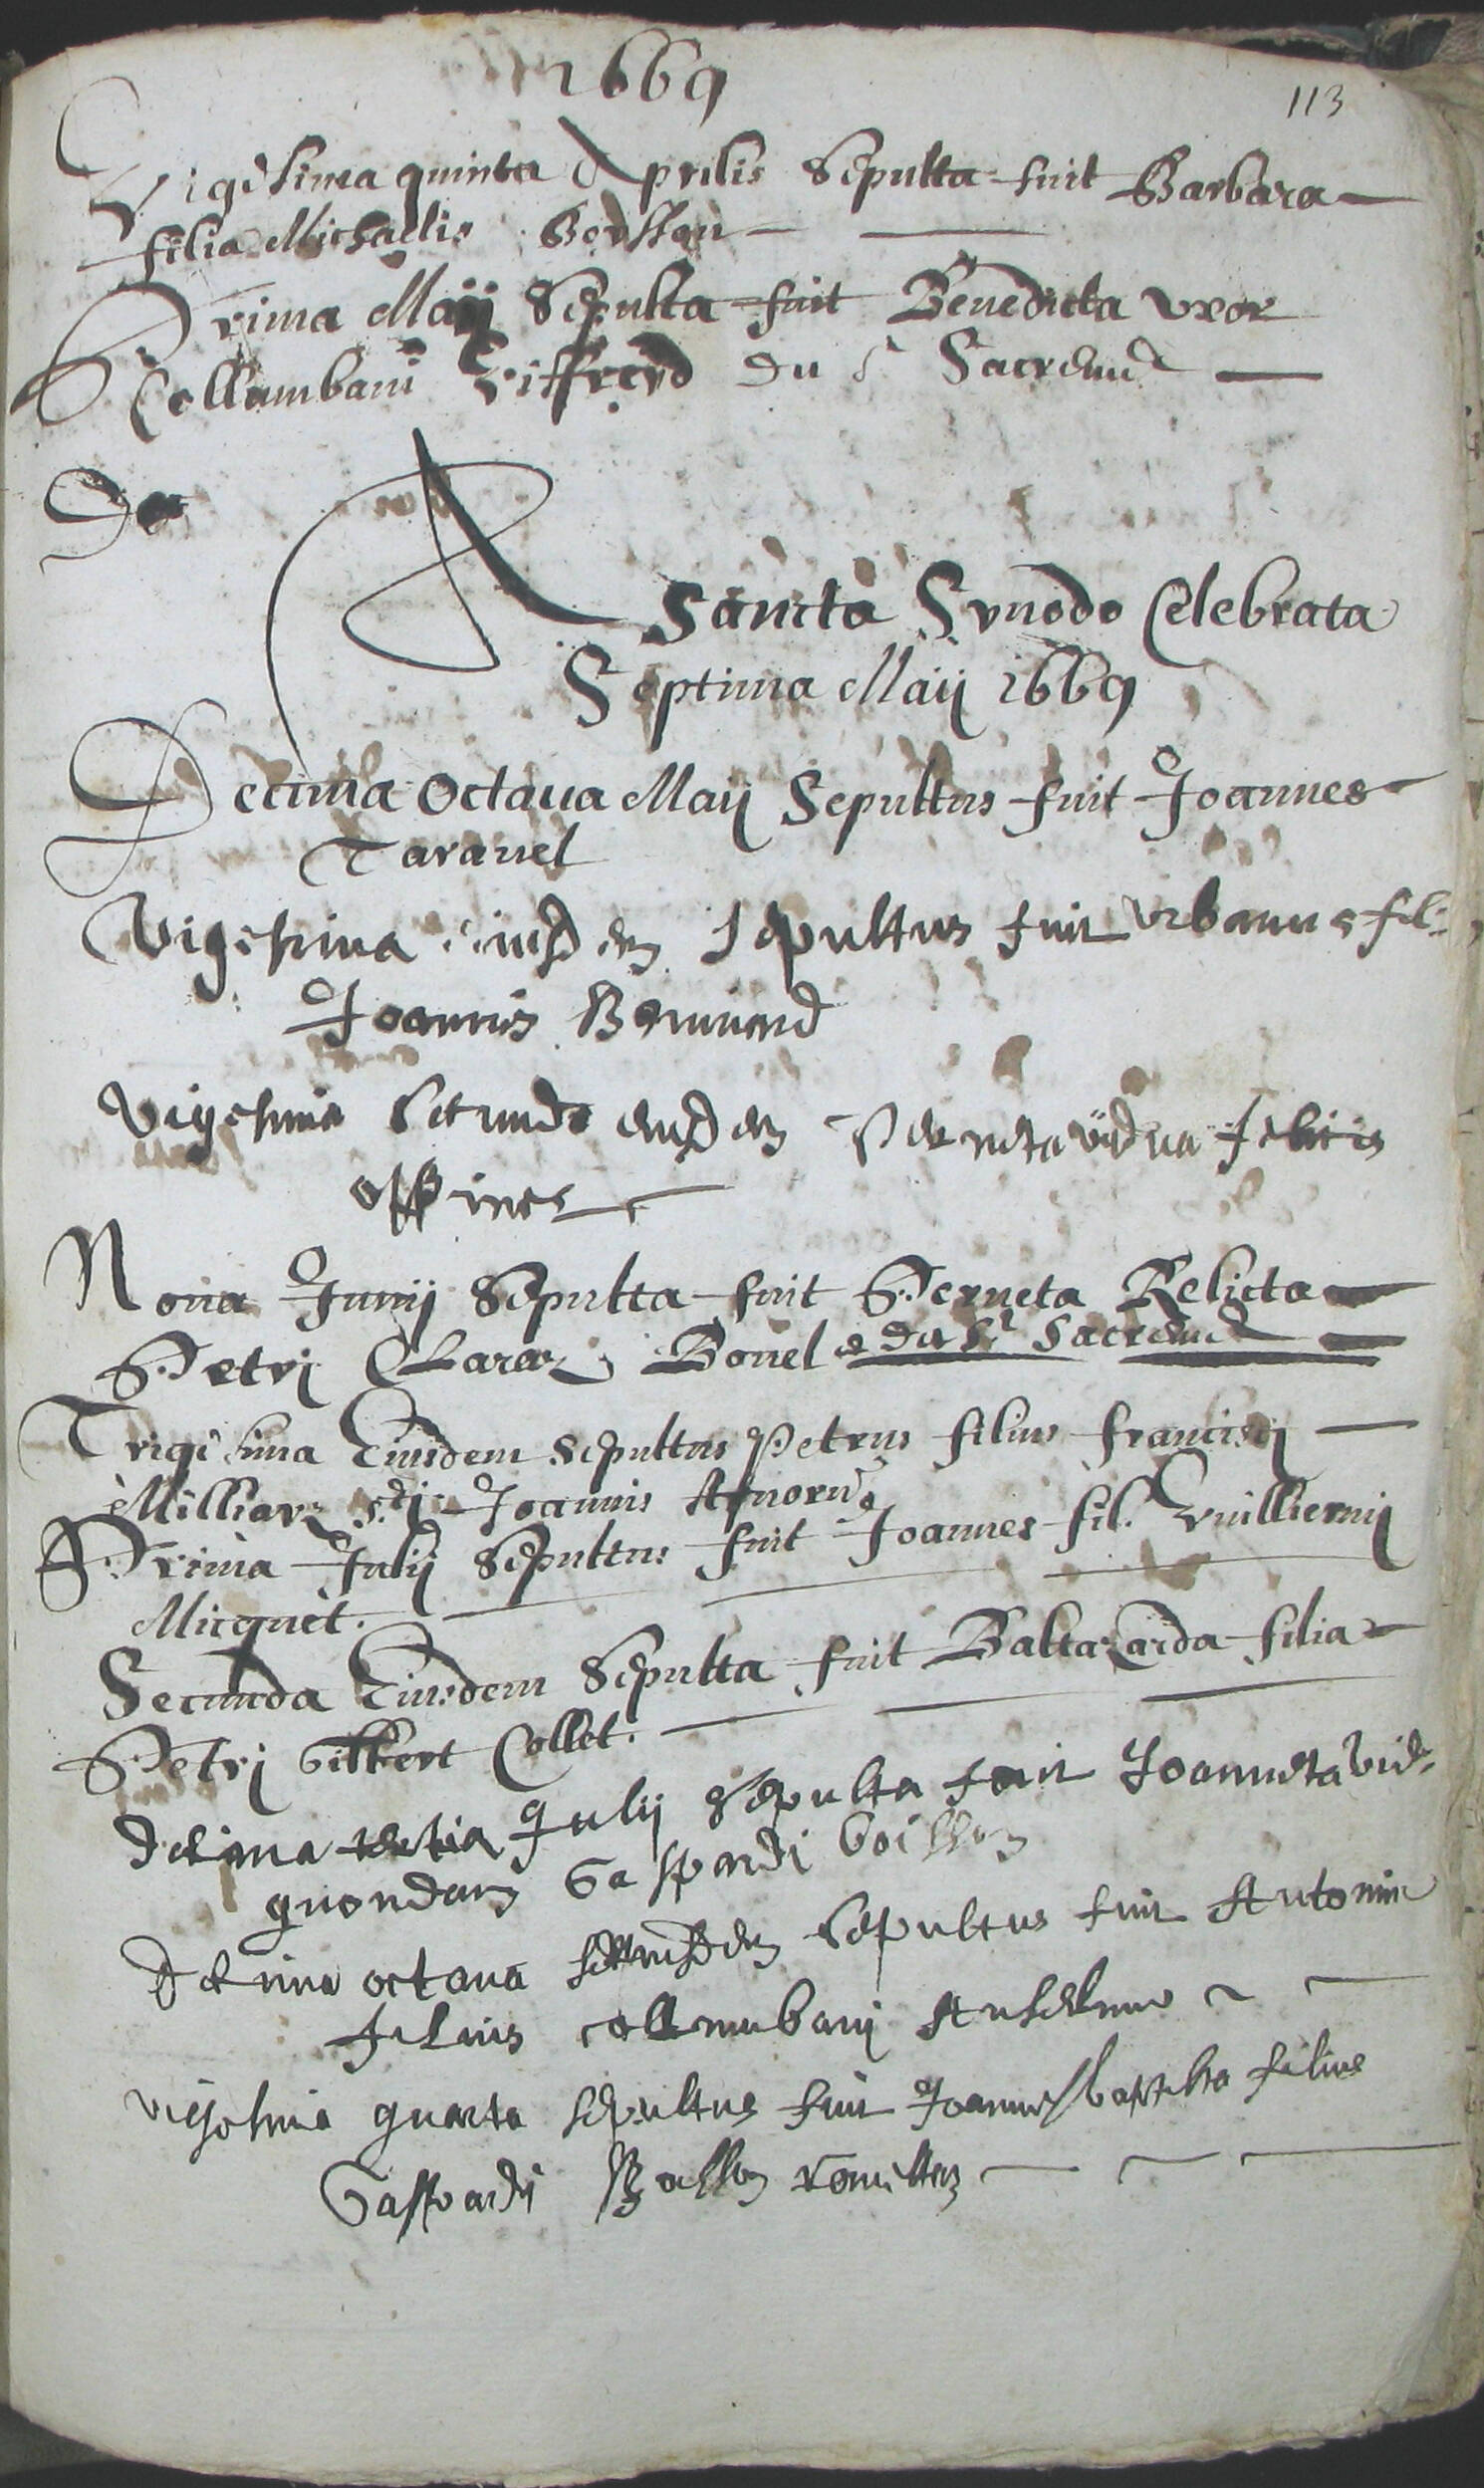 1669
113
Vigesima quinta Aprilis Sepulta fuit Barbara
filia Michaelis Borsson
Prima Maij Sepulta fuit Benedicta uxor
Collumbani Riffrerd du St Sacremt
De
A Sancta Synodo Celebrata
Septima Maij 1669
Decima Octaua Maij Sepultus fuit Joannes
Taravel
Vigesima eiusdem sepultus fuit urbanus fil:
Joannis
Vigesima secunda eiusdem Perneta vidua felicis
Nona Junij Sepulta fuit Perneta Relicta
Petri Claraz Bonel du St Sacremt
Trigesima Eiusdem sepultus Petrus filius francisci
Milliar Joannis
Prima Julij Sepultus fuit Joannes fil. Guilliermij
Micquet.
Secunda Eiusdem Sepulta fuit Baltazarda filia
Petri Gibbert Collet.
Decima tertia Julij sepulta fuit Joanneta vid.
quondam Gaspardi
Decima octaua eiusdem sepultus fuit Antonius
filius collumbani Anselme
vigesima quarta sepultus fuit Joannes baptista filius
Gaspardi